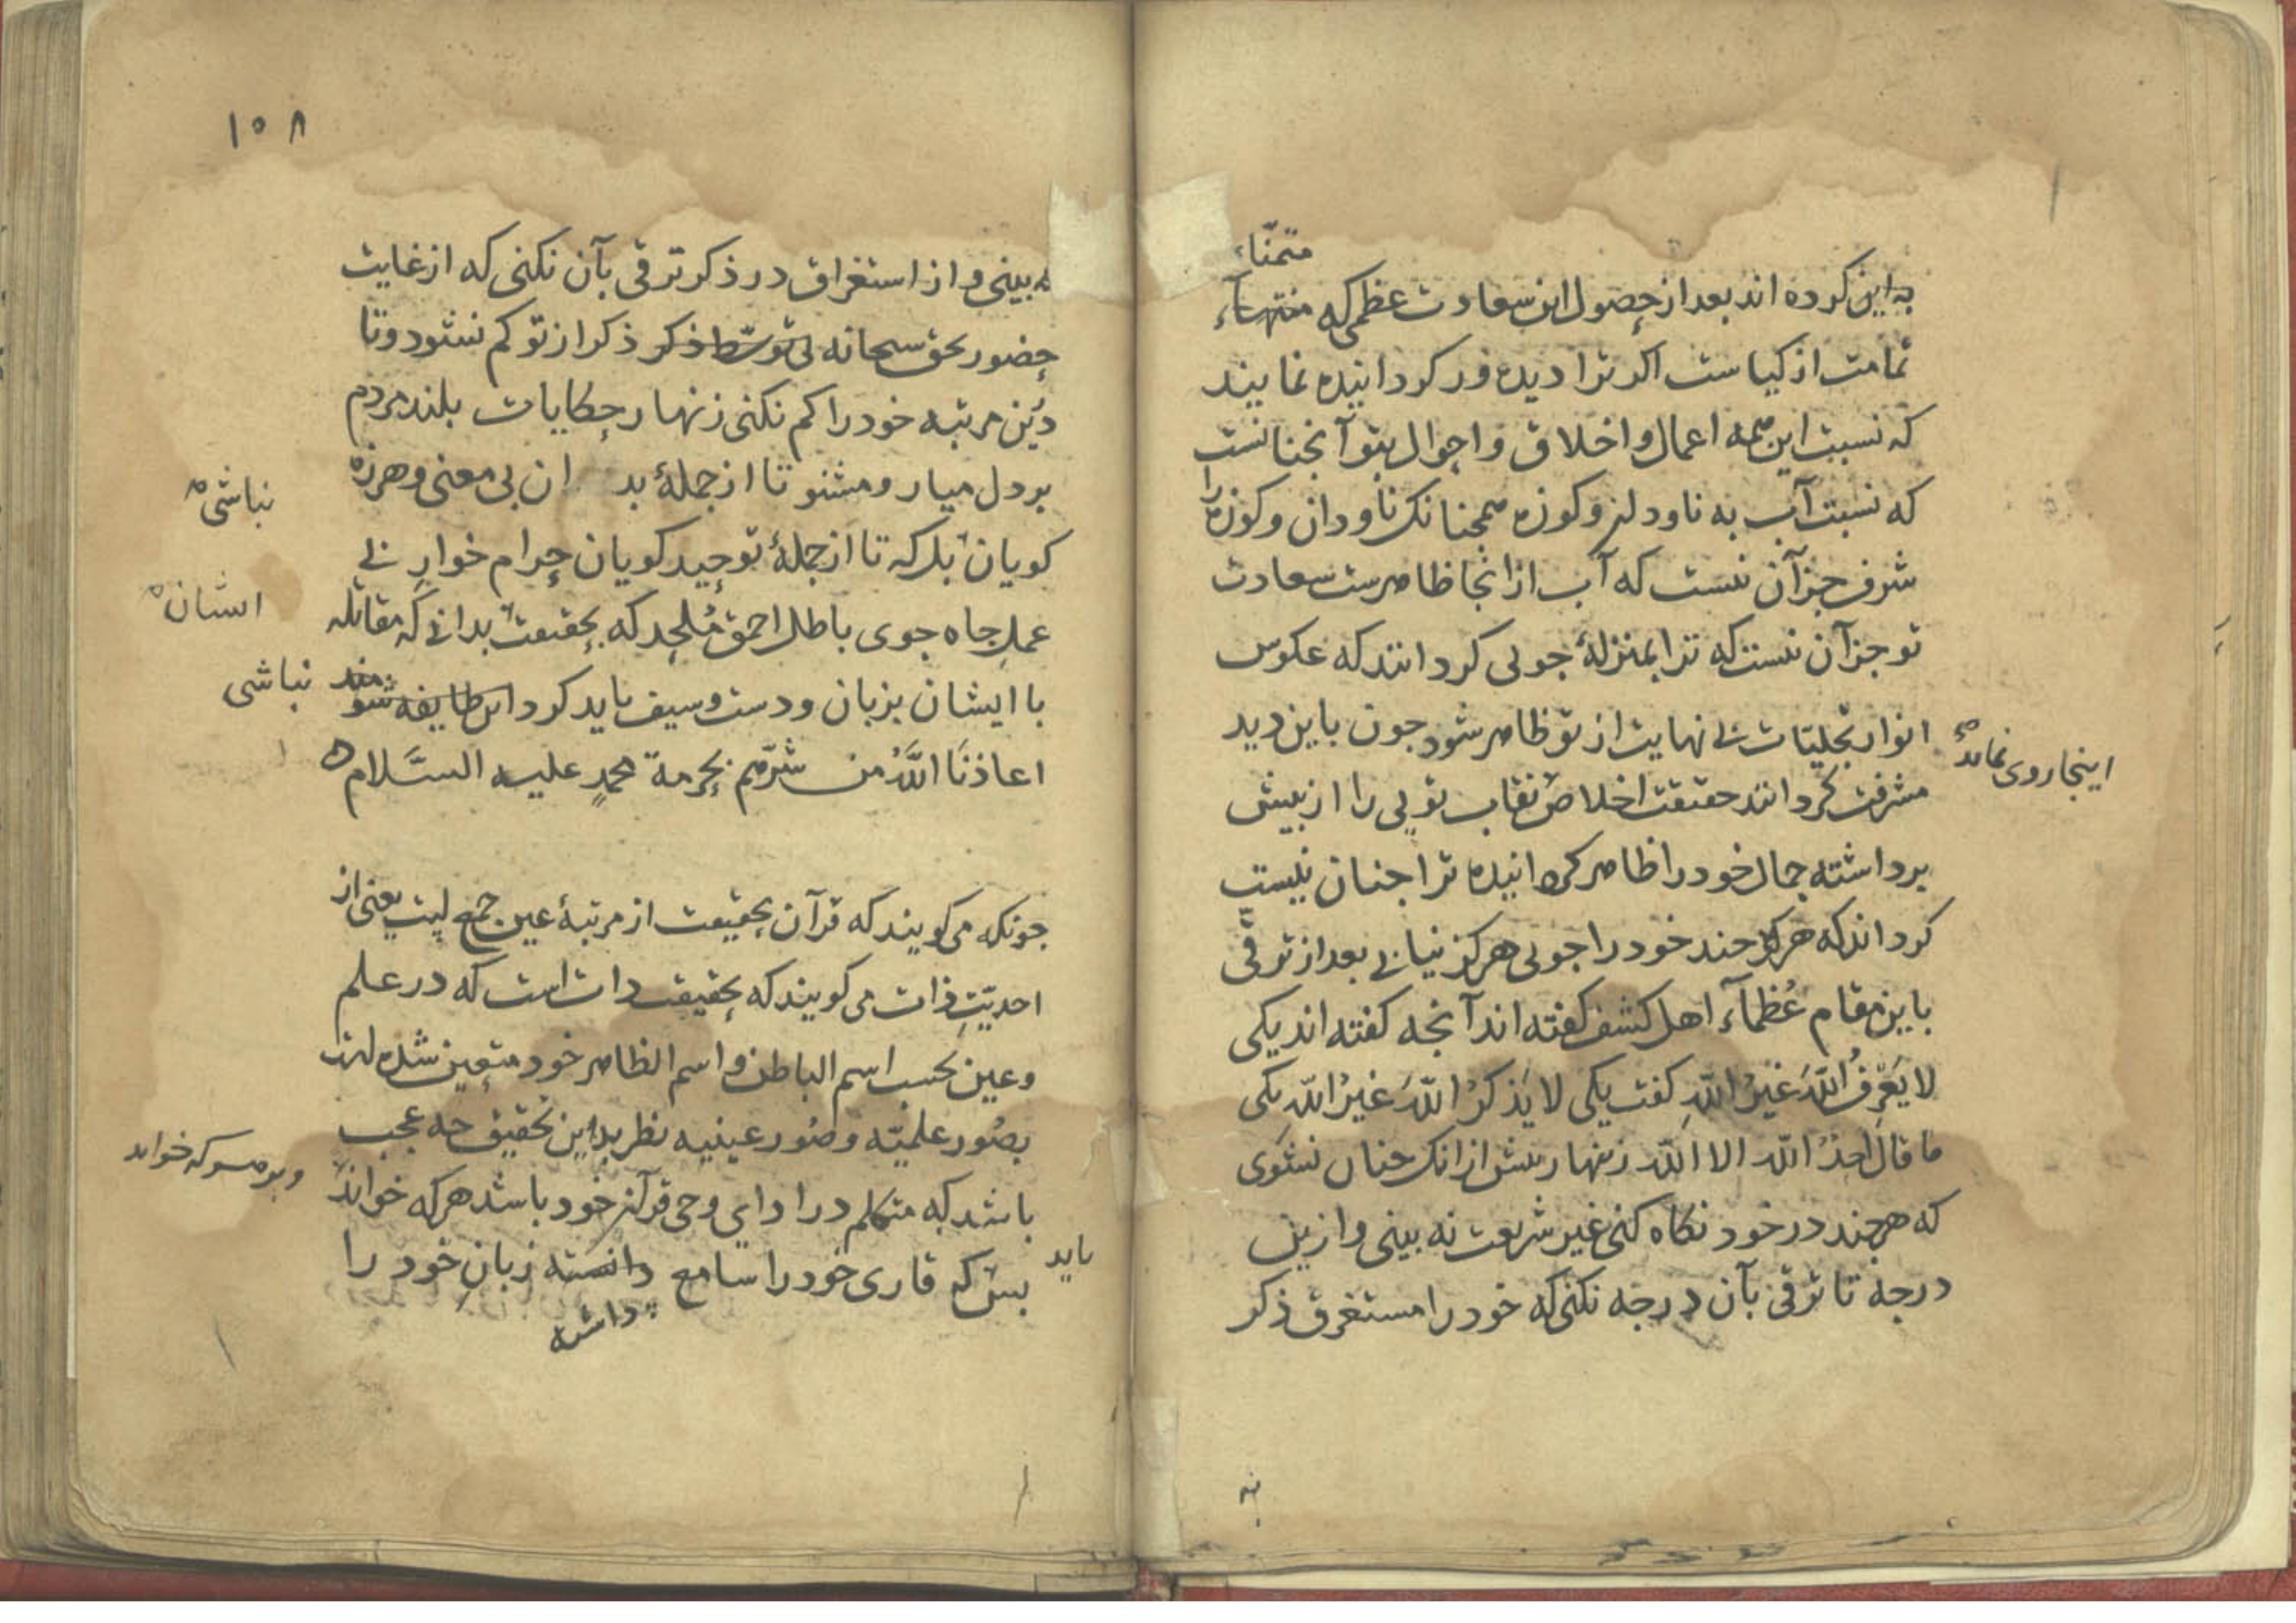 متمنّاء
به این کرده اند بعد از حصول این سعادت عظمی که منتهاء
تمامت از کیاست اکر ترا دیده ور کردانیده نمایند
که نسبت این همه اعمال و اخلاق و احوال بتو آنچنانست
که نسبت آب به ناودان و کوزه همچنانک ناودان و کوزه را
شرف جز آن نیست که آب از آنجا ظاهرست سعادت
تو جز آن نیست که ترا بمنزلهٔ جویی کردانند که عکوس
انوار تجلیّات بی نهایت از تو ظاهر شود جون باین دید
اینجا روی نماید
مشرفت کردانند حقیقت اخلاص نقاب تویی را از پیش
برداشته جمال خود را ظاهر کردانیده ترا چنان نیست
کرداند که هر چند خود را جویی هرکز نیابی بعد از ترقّی
باین مقام عُظمآء اهل کشف کفته اند آنچه کفته اند یکی
لا یَعْرِفُ اللّهَ غیرُ اللّهِ کفت یکی لا یَذکرُ اللّهَ غیرُ اللّهِ یکی
ما قال احدٌ اللّه الا اللّه زنهار پیش از انک چنان نشوی
که هرچند در خود نکاه کنی غیر شریعت نه بینی و ازین
درجه تا ترقی بآن درجه نکنی که خود را مستغرق ذکر
نه
۱۰۸
نه بینی و از استغراق در ذکر ترقی بآن نکنی که از غایت
حضور بحق سبحانه بی توسّط ذکر ذکر از تو کم نشود و تا
دُین مرتبه خود را کم نکنی زنهار حکایات بلند مردم
بر دل میار و مشنو تا از جملهٔ بد ان بی معنی و هرزه
نباشی
کویان بلکه تا از جملهٔ توحید کویان حرام خوارِ بی
عملِ جاه جوی باطل احمق مُلحد که بحقیقت بدانی که مقاتله
ایشان
با ایشان بزبان و دست و سیف باید کرد این طایفه شو
نباشی
اعاذنَا اللّهُ من شرّهم بحرمة محمدٍ علیه السّلام
جونکه می کویند که قرآن بحقیقت از مرتبهٔ عین جمع است یعنی از
احدیّتِ ذات می کویند که بحقیقت ذات است که در علم
و عین بحسب اسم الباطن و اسم الظاهر خود متعین شده است
بصُور علمیّه و صُور عینیه نظر بدین تحقیق چه عجب
باشد که متکلم در ادای وحی قرآن خود باشد هر که خواند
باید
پس که قاری خود را سامع دانسته زبان خود را
داشته